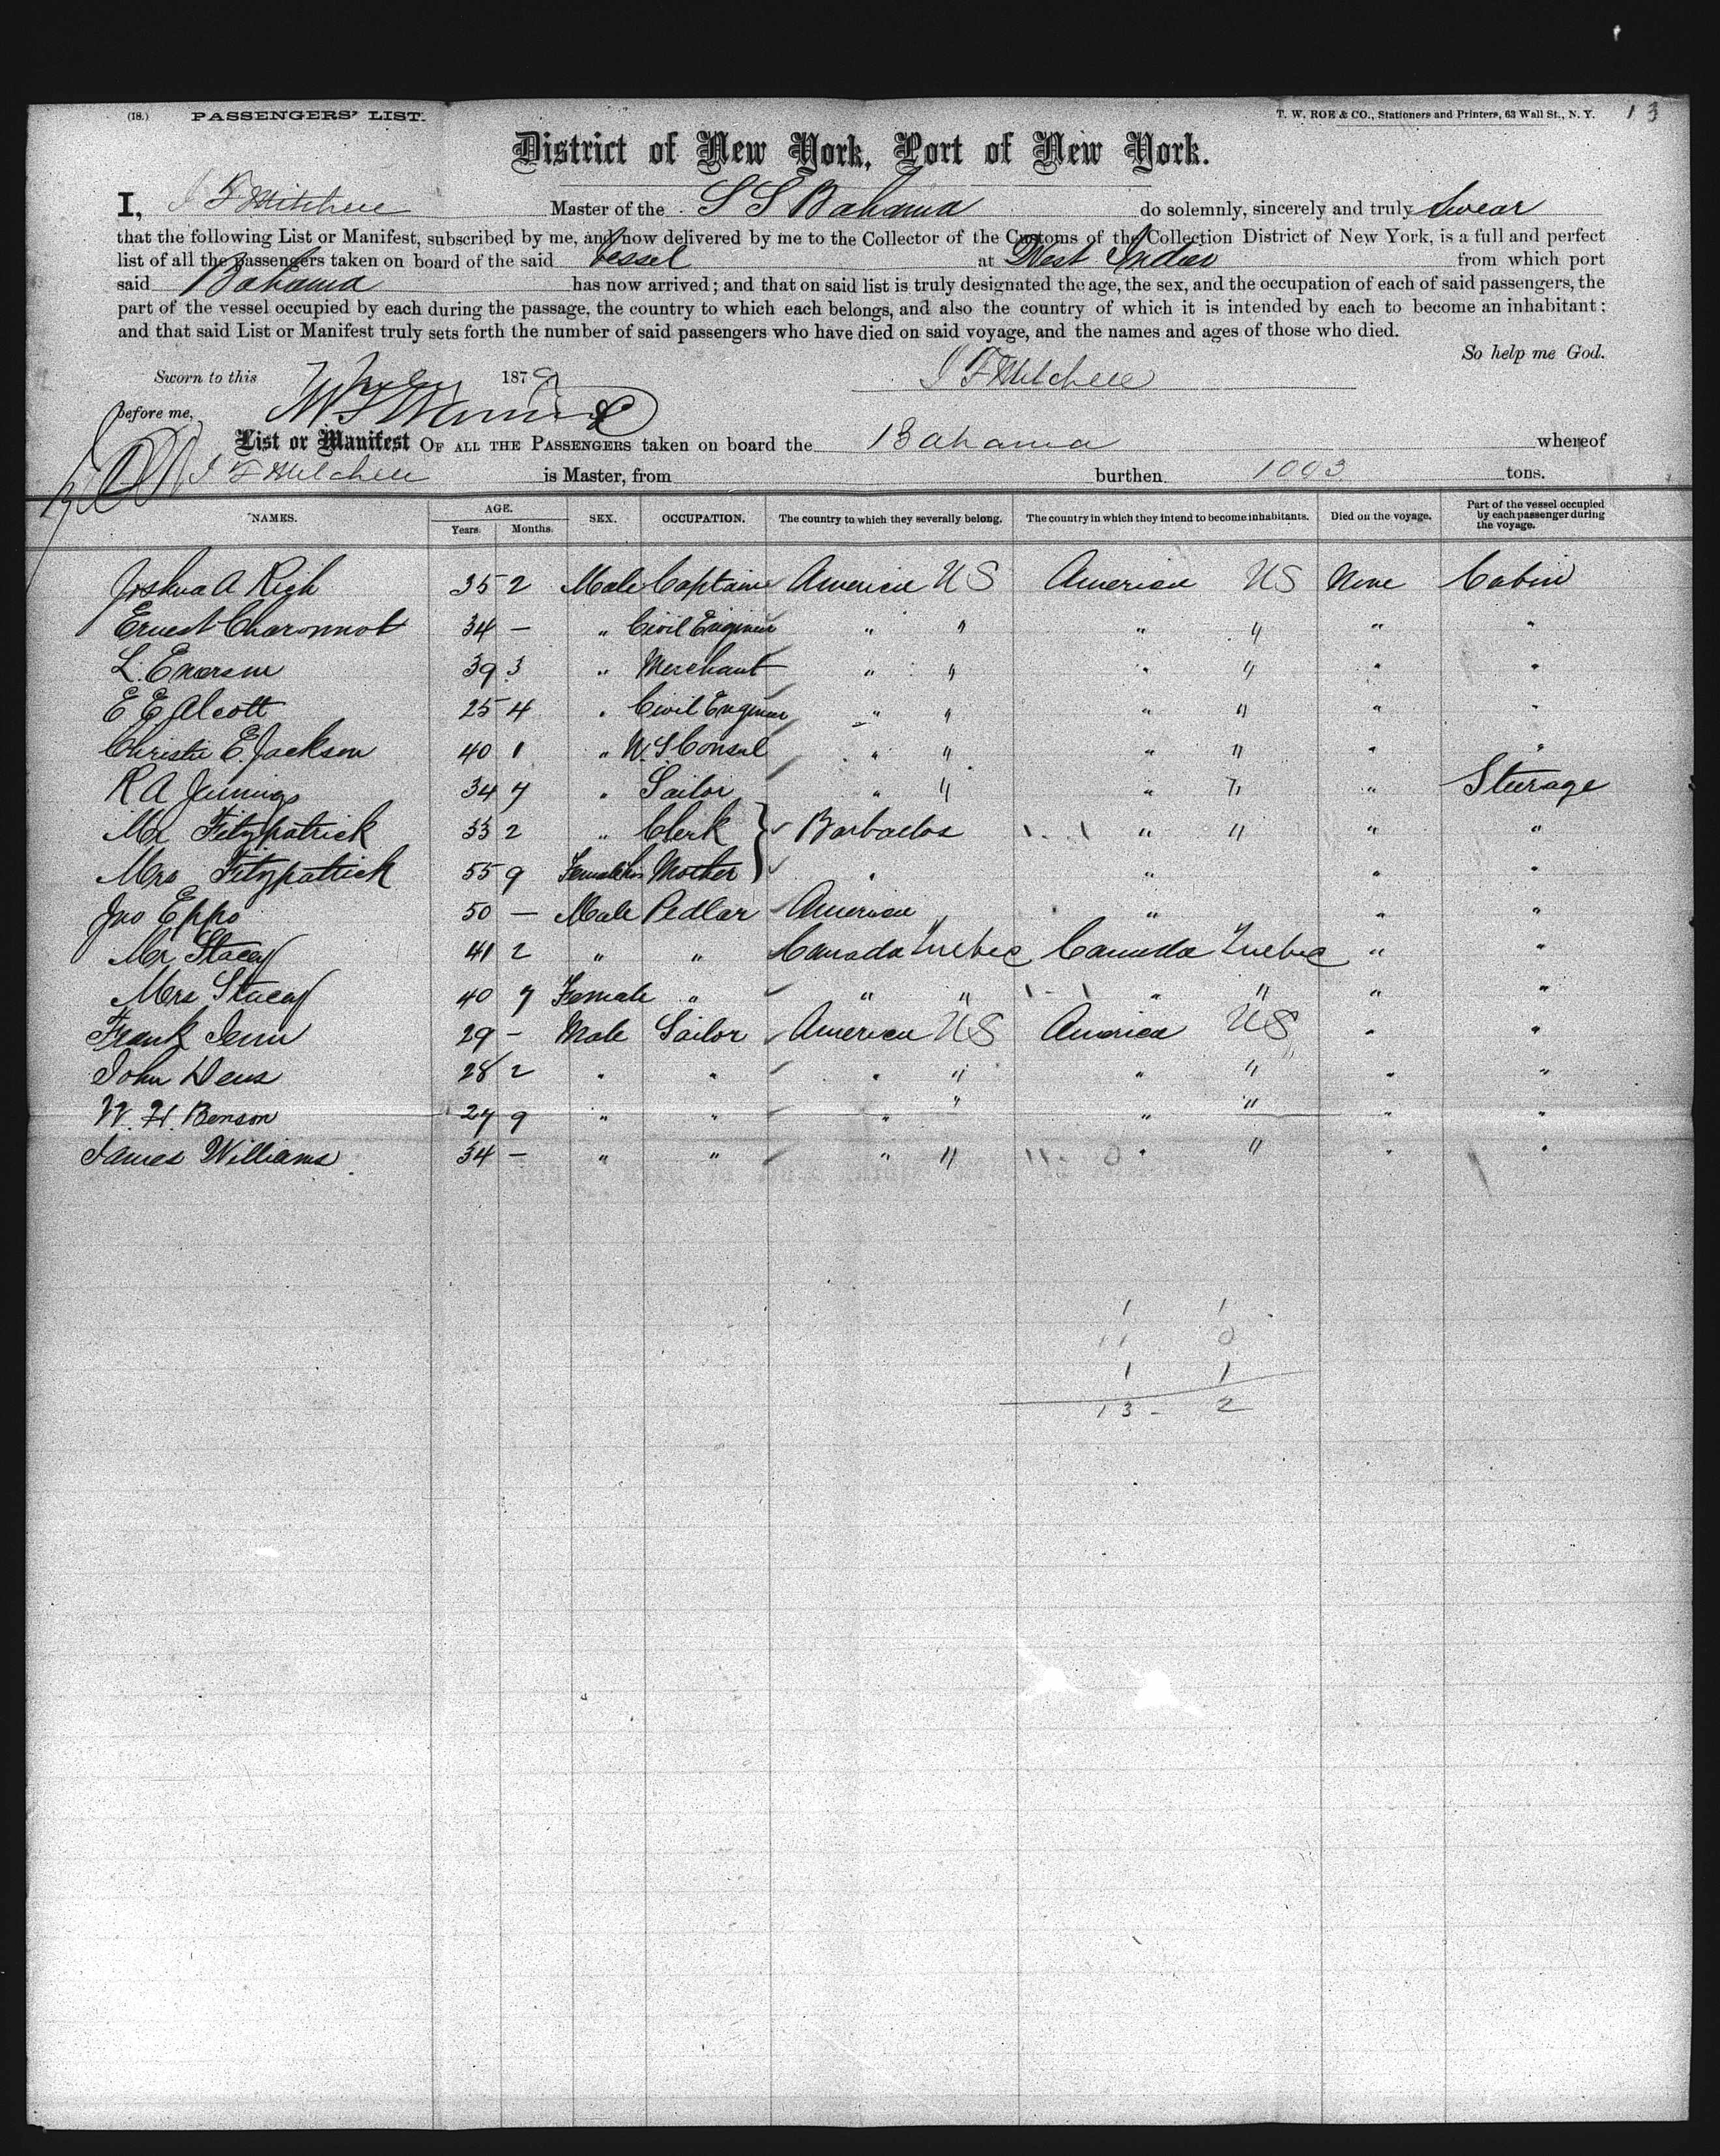 (18.) PASSENGERS' LIST. T. W. ROE & CO., Stationers and Printers, 63 Wall St., N. Y. 13
District of New York, Port of New York.
I, J F Mitchell Master of the S S Bahama do solemnly, sincerely and truly Swear
that the following List or Manifest, subscribed by me, and now delivered by me to the Collector of the Customs of the Collection District of New York, is a full and perfect
list of all the passengers taken on board of the said Vessel at West Indies from which port
said Bahama has now arrived; and that on said list is truly designated the age, the sex, and the occupation of each of said passengers, the
part of the vessel occupied by each during the passage, the country to which each belongs, and also the country of which it is intended by each to become an inhabitant;
and that said List or Manifest truly sets forth the number of said passengers who have died on said voyage, and the names and ages of those who died.
So help me God.
Sworn to this 1879 J F Mitchell
before me,
List or Manifest OF ALL THE PASSENGERS taken on board the Bahama whereof
J F Mitchell is Master, from burthen 1003 tons.
NAMES. AGE. Years. Months. SEX. OCCUPATION. The country to which they severally belong. The country in which they intend to become inhabitants. Died on the voyage. Part of the vessel occupied by each passenger during the voyage.
Joshua A Rich 35 2 Male Captain America US America US None Cabin
Ernest Charonnot 34 — " Civil Engineer " " " " " "
L. 39 3 " Merchant " " " " " "
E E Alcott 25 4 " Civil Engineer " " " " " "
Christie E. Jackson 40 1 " U. S Consul " " " " " "
R A Jennings 34 7 " Sailor " " " " " Steerage
Mr Fitzpatrick 33 2 " Clerk Barbados " " " "
Mrs Fitzpatrick 55 9 Female his Mother " " " "
Jno Epps 50 — Male Pedlar America " " "
Mr Stacey 41 2 " " Canada Quebec Canada Quebec " "
Mrs Stacey 40 7 Female " " " " " " "
Frank 29 - Male Sailor America US America US " "
John 28 2 " " " " " " " "
W. H. Benson 27 9 " " " " " " " "
James Williams 34 — " " " " " " " "
1 1
11 0
1 1
13 - 2